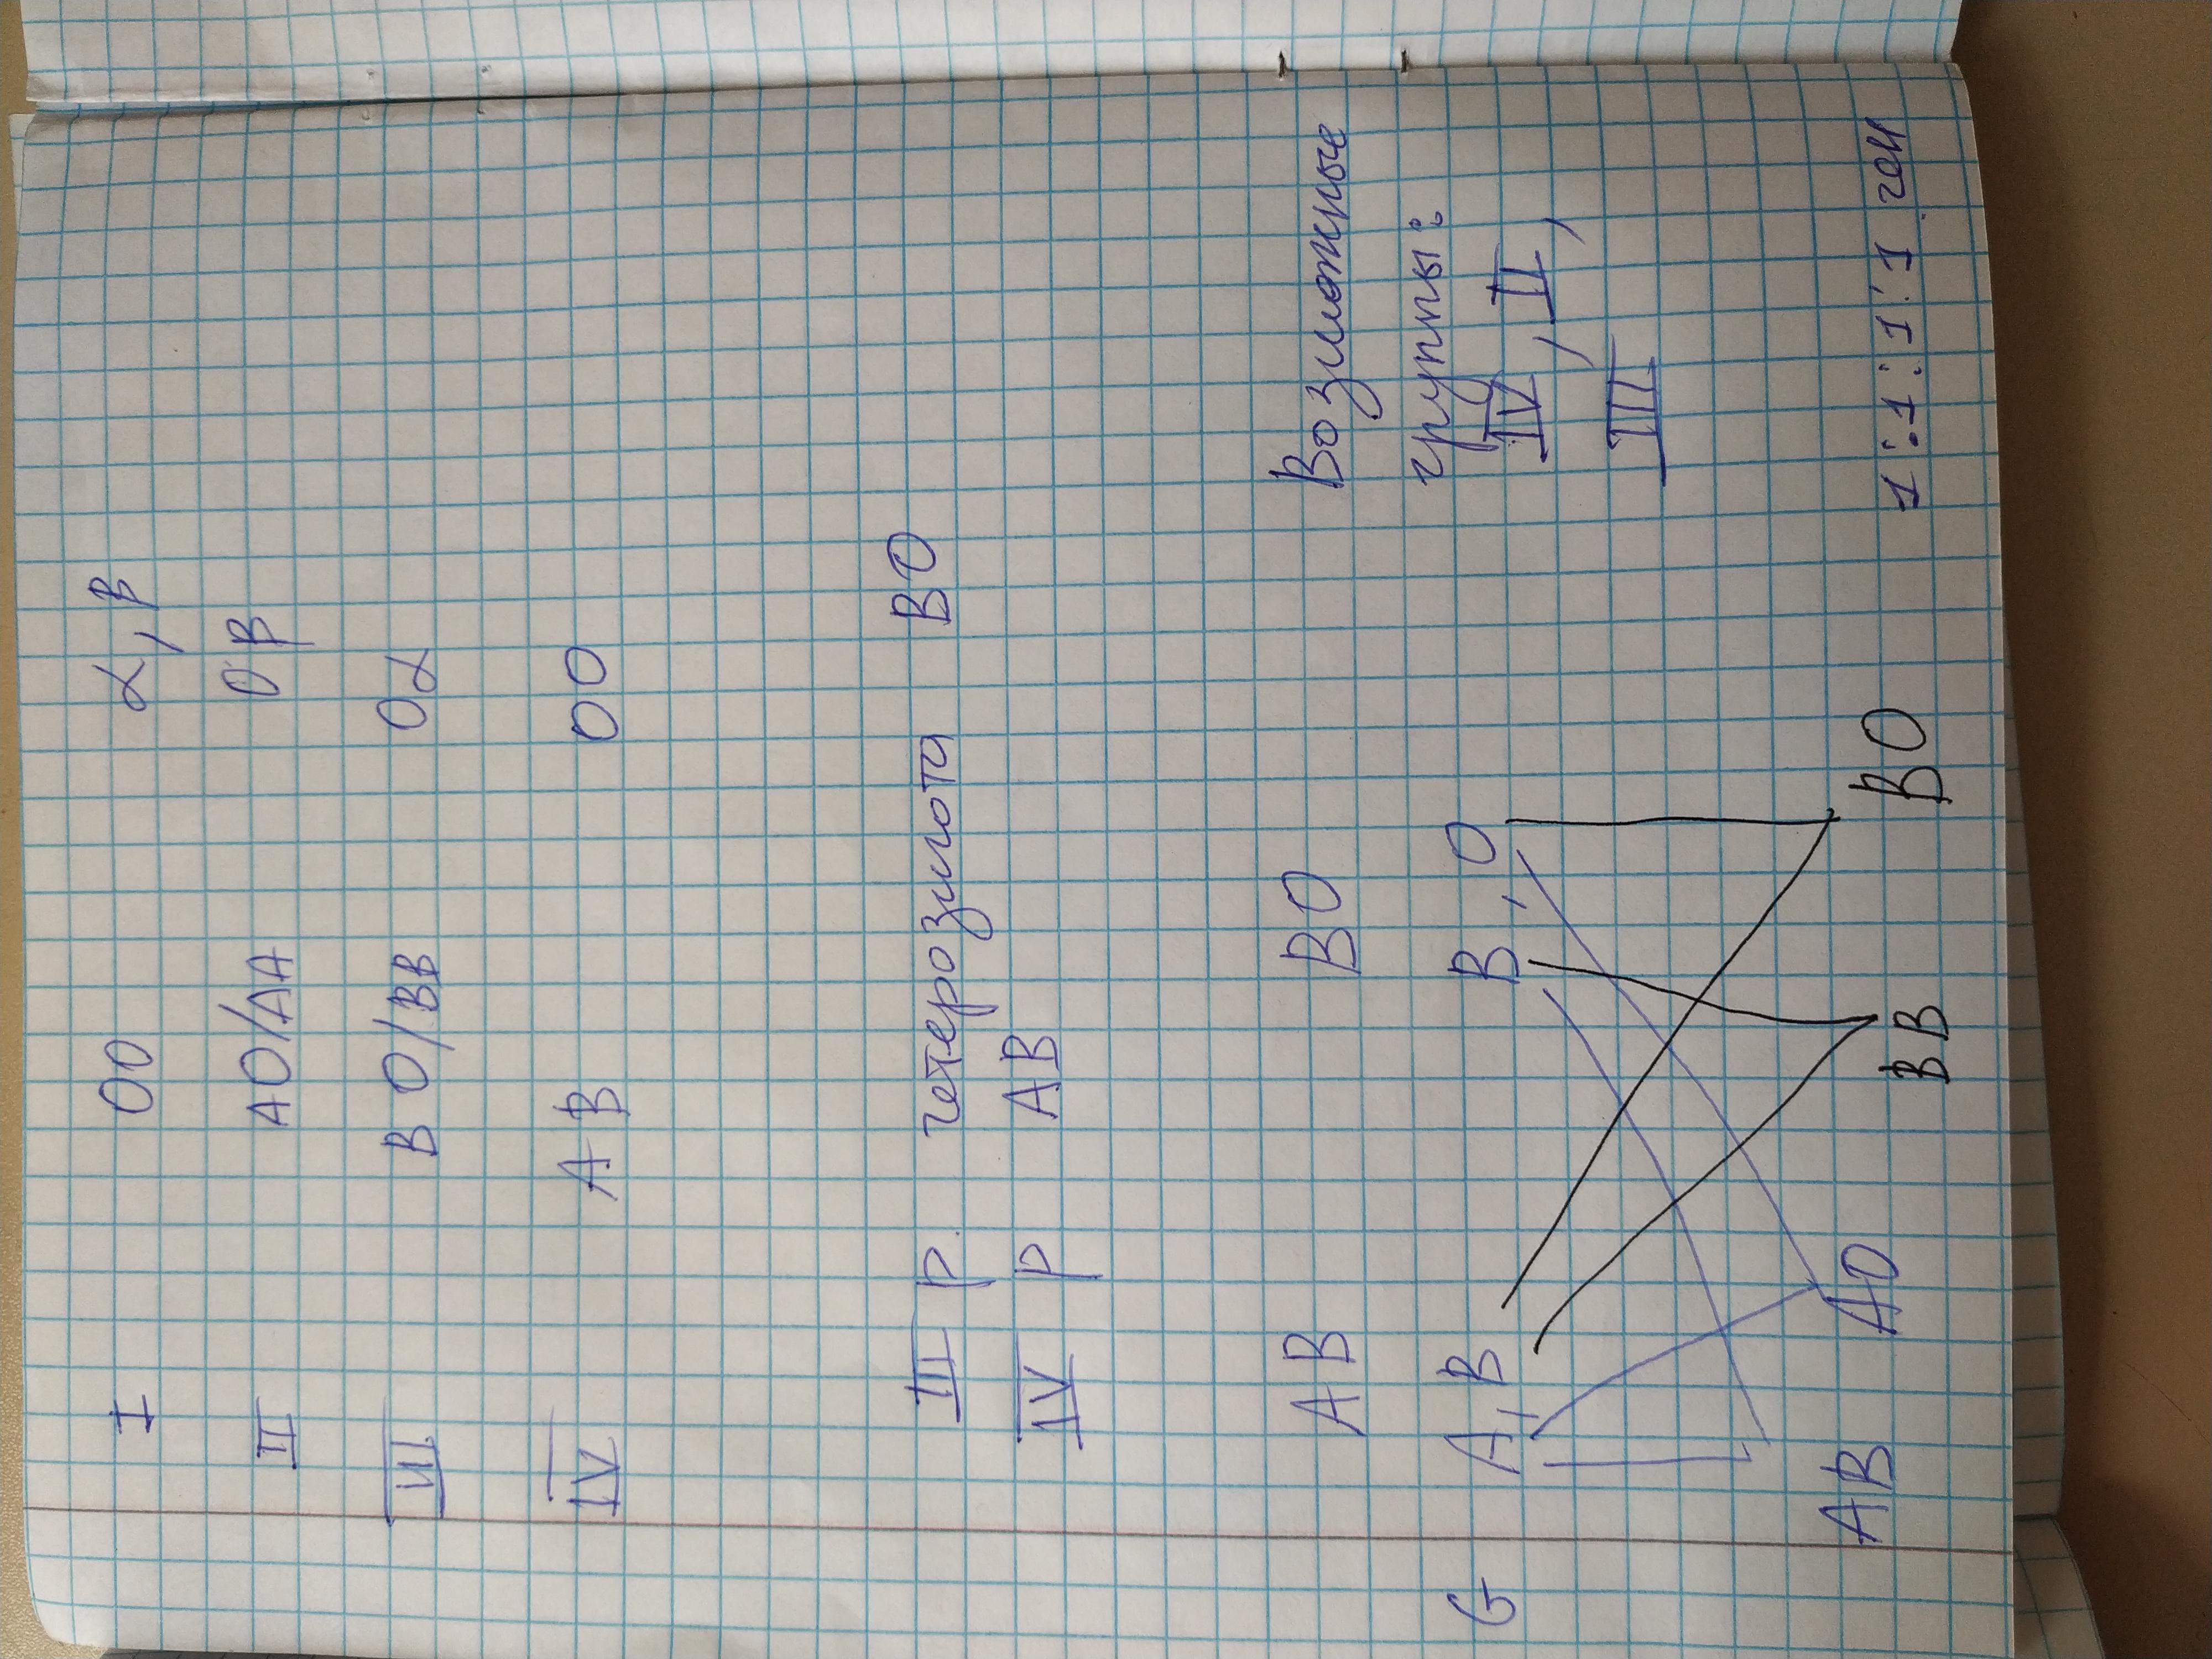 I OO α, β
II AO/AA Oβ
III BO/BB Oα
IV AB OO
III р. гетерозигота BO
IV р AB
AB BO
Возможные
группы:
IV, II,
III
G A, B B, O
AB AO BB BO
1:1:1:1 ген